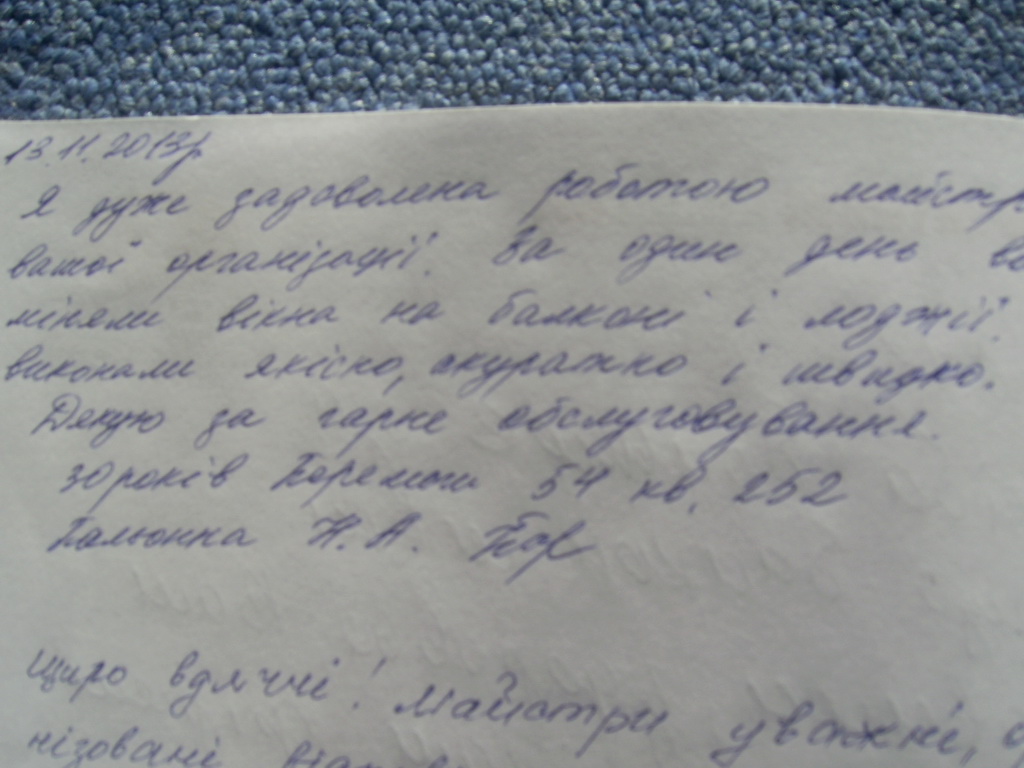 13.11.2013р
Я дуже задоволена роботою майстр
вашої організації. За один день
міняли вікна на балконі і лоджії.
виконали якісно, акуратно і швидко.
Дякую за гарне обслуговування.
30 років Перемоги 54 кв. 252
Н. А.
Щиро вдячні! Майстри уважні,
нізовані